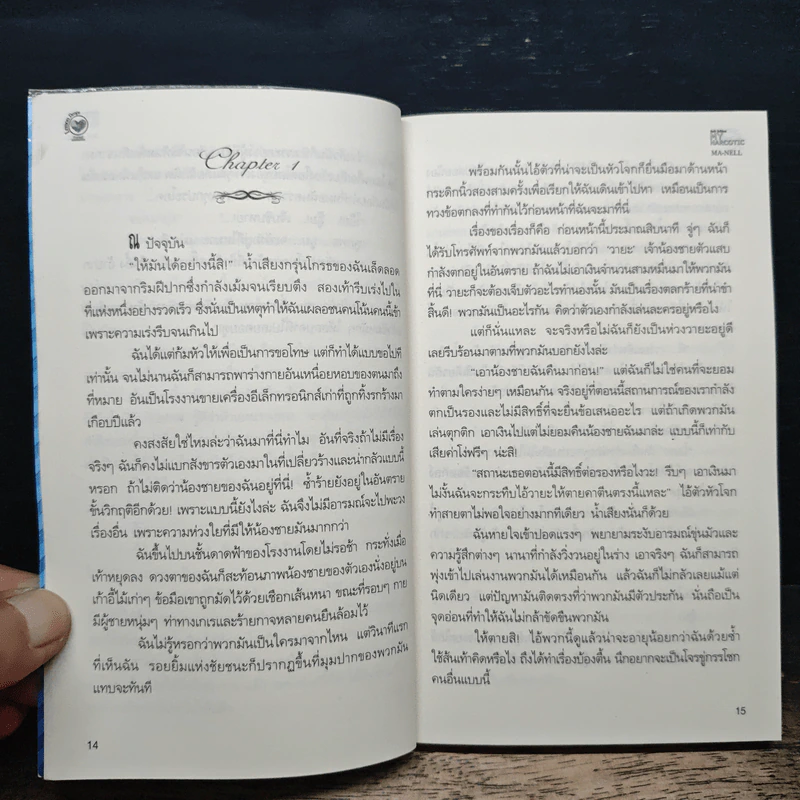 Chapter 1
ณ ปัจจุบัน
“ให้มันได้อย่างนี้สิ!” น้ำเสียงกรุ่นโกรธของฉันเล็ดลอด
ออกมาจากริมฝีปากซึ่งกำลังเม้มจนเรียบตึง สองเท้ารีบเร่งไปใน
ที่แห่งหนึ่งอย่างรวดเร็ว ซึ่งนั่นเป็นเหตุทำให้ฉันเผลอชนคนโน้นคนนี้เข้า
เพราะความเร่งรีบจนเกินไป
ฉันได้แต่ก้มหัวให้เพื่อเป็นการขอโทษ แต่ก็ทำได้แบบขอไปที
เท่านั้น จนไม่นานฉันก็สามารถพาร่างกายอันเหนื่อยหอบของตนมาถึง
ที่หมาย อันเป็นโรงงานขายเครื่องอิเล็กทรอนิกส์เก่าที่ถูกทิ้งรกร้างมา
เกือบปีแล้ว
คงสงสัยใช่ไหมล่ะว่าฉันมาที่นี่ทำไม อันที่จริงถ้าไม่มีเรื่อง
จริงๆ ฉันก็คงไม่แบกสังขารตัวเองมาในที่เปลี่ยวร้างและน่ากลัวแบบนี้
หรอก ถ้าไม่ติดว่าน้องชายของฉันอยู่ที่นี่! ซ้ำร้ายยังอยู่ในอันตราย
ขั้นวิกฤติอีกด้วย! เพราะแบบนี้ยังไงล่ะ ฉันจึงไม่มีอารมณ์จะไปพะวง
เรื่องอื่น เพราะความห่วงใยที่มีให้น้องชายมันมากกว่า
ฉันขึ้นไปบนชั้นดาดฟ้าของโรงงานโดยไม่รอช้า กระทั่งเมื่อ
เท้าหยุดลง ดวงตาของฉันก็สะท้อนภาพน้องชายของตัวเองนั่งอยู่บน
เก้าอี้ไม้เก่าๆ ข้อมือเขาถูกมัดไว้ด้วยเชือกเส้นหนา ขณะที่รอบๆ กาย
มีผู้ชายหนุ่มๆ ท่าทางเกเรและร้ายกาจหลายคนยืนล้อมไว้
ฉันไม่รู้หรอกว่าพวกมันเป็นใครมาจากไหน แต่วินาทีแรก
ที่เห็นฉัน รอยยิ้มแห่งชัยชนะก็ปรากฏขึ้นที่มุมปากของพวกมัน
แทบจะทันที
14
MY
NARCOTIC
MA-NELL
พร้อมกันนั้นไอ้ตัวที่น่าจะเป็นหัวโจกก็ยื่นมือมาด้านหน้า
กระดิกนิ้วสองสามครั้งเพื่อเรียกให้ฉันเดินเข้าไปหา เหมือนเป็นการ
ทวงข้อตกลงที่ทำกันไว้ก่อนหน้าที่ฉันจะมาที่นี่
เรื่องของเรื่องก็คือ ก่อนหน้านี้ประมาณสิบนาที จู่ๆ ฉันก็
ได้รับโทรศัพท์จากพวกมันแล้วบอกว่า ‘วายะ’ เจ้าน้องชายตัวแสบ
กำลังตกอยู่ในอันตราย ถ้าฉันไม่เอาเงินจำนวนสามหมื่นมาให้พวกมัน
ที่นี่ วายะก็จะต้องเจ็บตัวอะไรทำนองนั้น มันเป็นเรื่องตลกร้ายที่น่าขำ
สิ้นดี! พวกมันเป็นอะไรกัน คิดว่าตัวเองกำลังเล่นละครอยู่หรือไง
แต่ก็นั่นแหละ จะจริงหรือไม่ฉันก็ยังเป็นห่วงวายะอยู่ดี
เลยรีบร้อนมาตามที่พวกมันบอกยังไงล่ะ
“เอาน้องชายฉันคืนมาก่อน!” แต่ฉันก็ไม่ใช่คนที่จะยอม
ทำตามใครง่ายๆ เหมือนกัน จริงอยู่ที่ตอนนี้สถานการณ์ของเรากำลัง
ตกเป็นรองและไม่มีสิทธิ์ที่จะยื่นข้อเสนออะไร แต่ถ้าเกิดพวกมัน
เล่นตุกติก เอาเงินไปแต่ไม่ยอมคืนน้องชายฉันมาล่ะ แบบนี้ก็เท่ากับ
เสียค่าโง่ฟรีๆ น่ะสิ!
“สถานะเธอตอนนี้มีสิทธิ์ต่อรองหรือไงวะ! รีบๆ เอาเงินมา
ไม่งั้นฉันจะกระทืบไอ้วายะให้ตายคาตีนตรงนี้แหละ” ไอ้ตัวหัวโจก
ทำสายตาไม่พอใจอย่างมากทีเดียว น้ำเสียงนั่นก็ด้วย
ฉันหายใจเข้าปอดแรงๆ พยายามระงับอารมณ์ขุ่นมัวและ
ความรู้สึกต่างๆ นานาที่กำลังวิ่งวนอยู่ในร่าง เอาจริงๆ ฉันก็สามารถ
พุ่งเข้าไปเล่นงานพวกมันได้เหมือนกัน แล้วฉันก็ไม่กลัวเลยแม้แต่
นิดเดียว แต่ปัญหามันติดตรงที่ว่าพวกมันมีตัวประกัน นั่นถือเป็น
จุดอ่อนที่ทำให้ฉันไม่กล้าขัดขืนพวกมัน
ให้ตายสิ! ไอ้พวกนี้ดูแล้วน่าจะอายุน้อยกว่าฉันด้วยซ้ำ
ใช้ส้นเท้าคิดหรือไง ถึงได้ทำเรื่องบ้องตื้น นึกอยากจะเป็นโจรขู่กรรโชก
คนอื่นแบบนี้
15